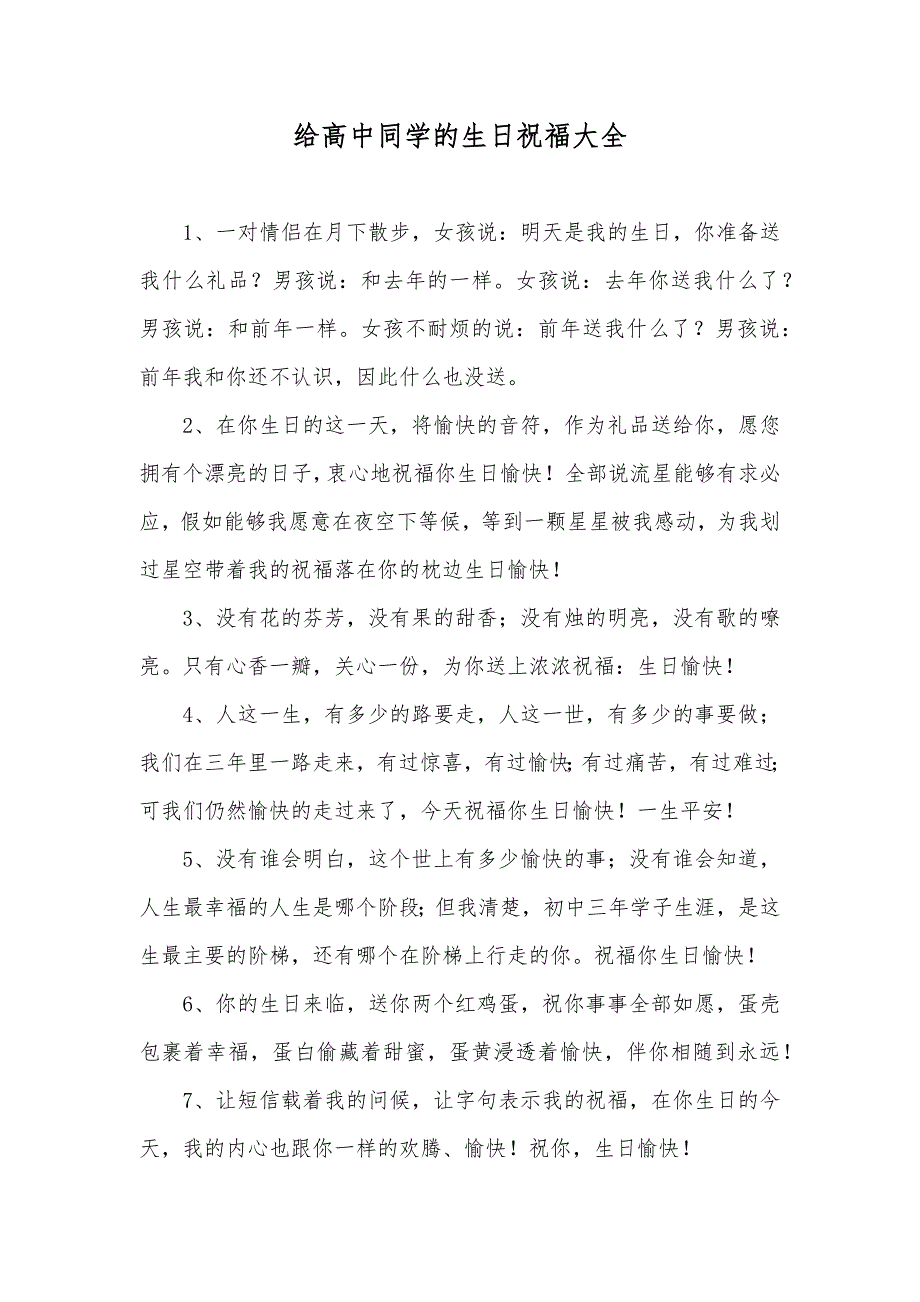 给高中同学的生日祝福大全
1、一对情侣在月下散步，女孩说：明天是我的生日，你准备送
我什么礼品？男孩说：和去年的一样。女孩说：去年你送我什么了？
男孩说：和前年一样。女孩不耐烦的说：前年送我什么了？男孩说：
前年我和你还不认识，因此什么也没送。
2、在你生日的这一天，将愉快的音符，作为礼品送给你，愿您
拥有个漂亮的日子，衷心地祝福你生日愉快！全部说流星能够有求必
应，假如能够我愿意在夜空下等候，等到一颗星星被我感动，为我划
过星空带着我的祝福落在你的枕边生日愉快！
3、没有花的芬芳，没有果的甜香；没有烛的明亮，没有歌的嘹
亮。只有心香一瓣，关心一份，为你送上浓浓祝福：生日愉快！
4、人这一生，有多少的路要走，人这一世，有多少的事要做；
我们在三年里一路走来，有过惊喜，有过愉快；有过痛苦，有过难过；
可我们仍然愉快的走过来了，今天祝福你生日愉快！一生平安！
5、没有谁会明白，这个世上有多少愉快的事；没有谁会知道，
人生最幸福的人生是哪个阶段；但我清楚，初中三年学子生涯，是这
生最主要的阶梯，还有哪个在阶梯上行走的你。祝福你生日愉快！
6、你的生日来临，送你两个红鸡蛋，祝你事事全部如愿，蛋壳
包裹着幸福，蛋白偷藏着甜蜜，蛋黄浸透着愉快，伴你相随到永远！
7、让短信载着我的问候，让字句表示我的祝福，在你生日的今
天，我的内心也跟你一样的欢腾、愉快！祝你，生日愉快！